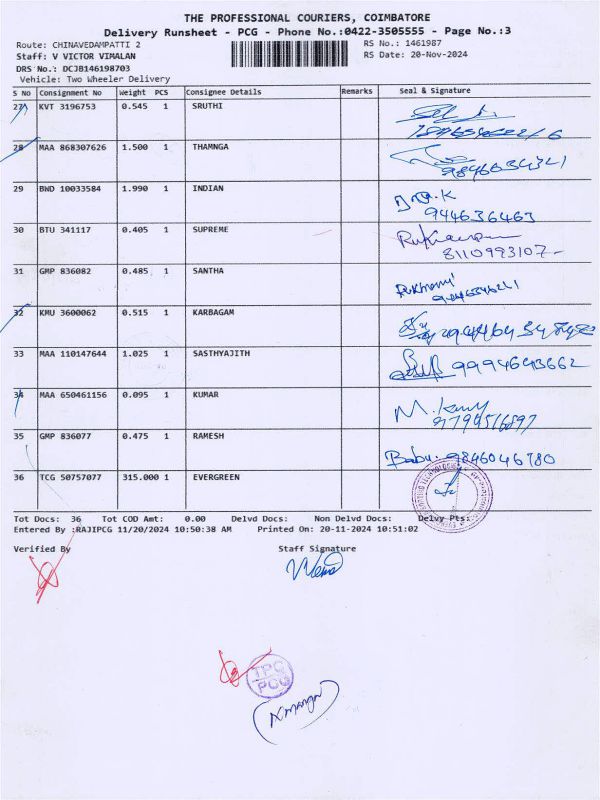 THE PROFESSIONAL COURIERS, COIMBATORE
Delivery Runsheet - PCG - Phone No.:0422-3505555 - Page No.:3
Route: CHINAVEDAMPATTI 2 RS No.: 1461987
Staff: V VICTOR VIMALAN RS Date: 20-Nov-2024
DRS No.: DCJB146198703
Vehicle: Two Wheeler Delivery
S No Consignment No Weight PCS Consignee Details Remarks Seal & Signature
27 KVT 3196753 0.545 1 SRUTHI
28 MAA 868307626 1.500 1 THAMNGA 9846034321
29 BWD 10033584 1.990 1 INDIAN
944636463
30 BTU 341117 0.405 1 SUPREME
8110993107
31 GMP 836082 0.485 1 SANTHA Rukmani
32 KMU 3600062 0.515 1 KARBAGAM
33 MAA 110147644 1.025 1 SASTHYAJITH 9994643662
34 MAA 650461156 0.095 1 KUMAR
9794516897
35 GMP 836077 0.475 1 RAMESH
Babu. 9846046780
36 TCG 50757077 315.000 1 EVERGREEN
Tot Docs: 36 Tot COD Amt: 0.00 Delvd Docs: Non Delvd Docs: Delvy Pts:
Entered By :RAJIPCG 11/20/2024 10:50:38 AM Printed On: 20-11-2024 10:51:02
Verified By Staff Signature
TPC
PCG